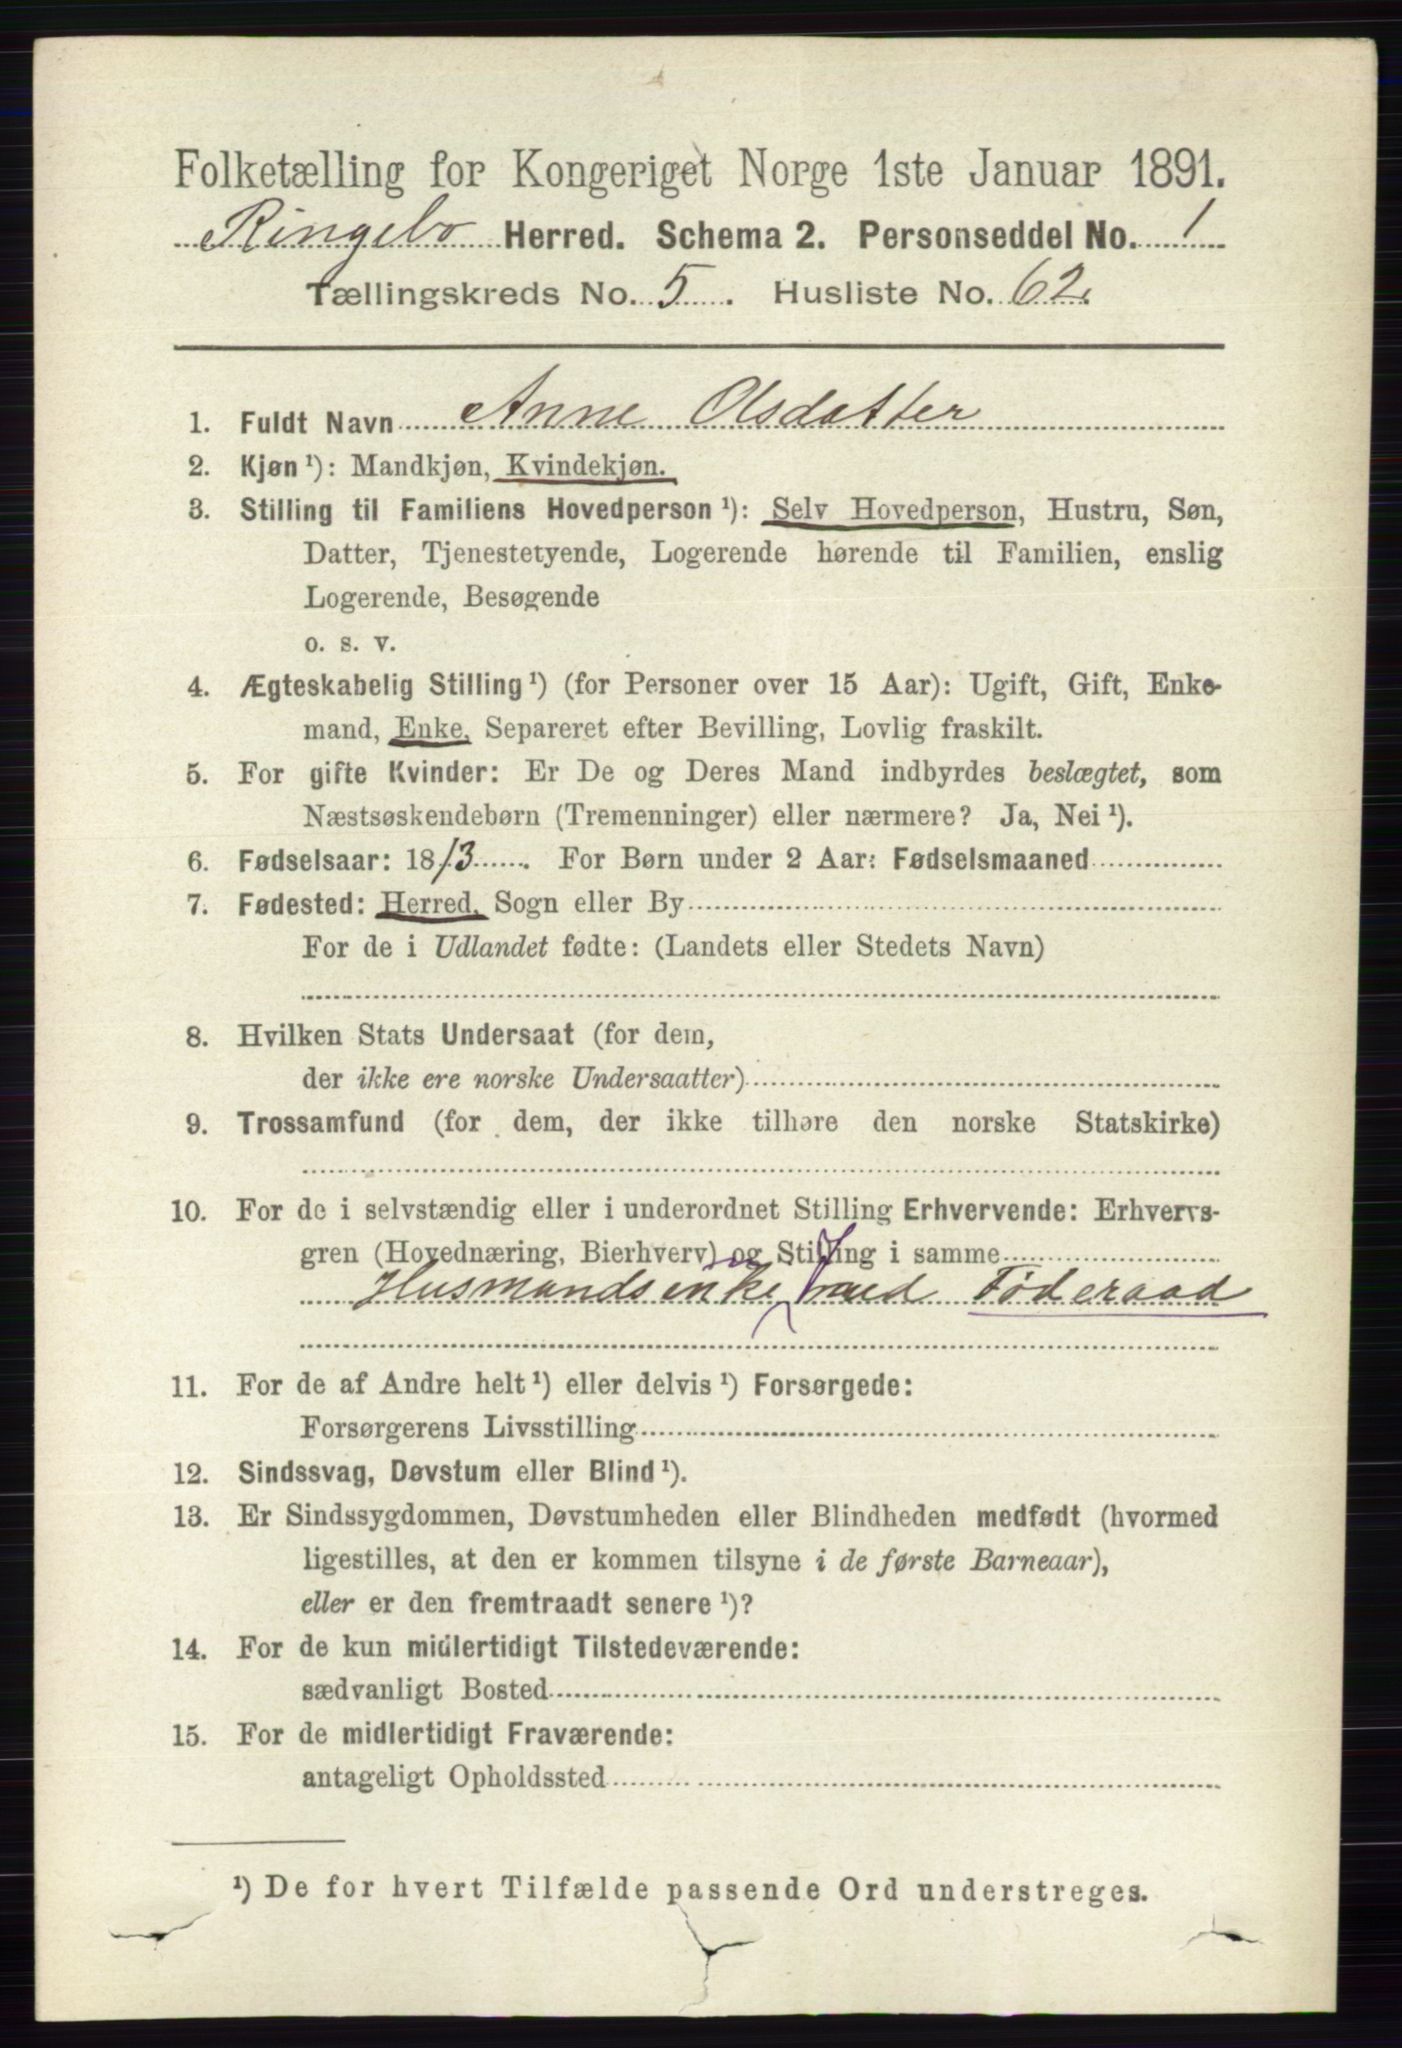 Folketælling for Kongeriget Norge 1ste Januar 1891.
Ringebo Herred. Schema 2. Personseddel No. 1
Tællingskreds No. 5. Husliste No. 62.
1. Fuldt Navn Anne Olsdatter
2. Kjøn ¹): Mandkjøn, Kvindekjøn.
3. Stilling til Familiens Hovedperson ¹): Selv Hovedperson, Hustru, Søn,
Datter, Tjenestetyende, Logerende hørende til Familien, enslig
Logerende, Besøgende
o. s. v.
4. Ægteskabelig Stilling ¹) (for Personer over 15 Aar): Ugift, Gift, Enke-
mand, Enke, Separeret efter Bevilling, Lovlig fraskilt.
5. For gifte Kvinder: Er De og Deres Mand indbyrdes beslægtet, som
Næstsøskendebørn (Tremenninger) eller nærmere? Ja, Nei ¹).
6. Fødselsaar: 1813. For Børn under 2 Aar: Fødselsmaaned
7. Fødested: Herred, Sogn eller By
For de i Udlandet fødte: (Landets eller Stedets Navn)
8. Hvilken Stats Undersaat (for dem,
der ikke ere norske Undersaatter)
9. Trossamfund (for dem, der ikke tilhøre den norske Statskirke)
10. For de i selvstændig eller i underordnet Stilling Erhvervende: Erhvervs-
gren (Hovednæring, Bierhverv) og Stilling i samme
Husmandsenke med Føderaad
11. For de af Andre helt ¹) eller delvis ¹) Forsørgede:
Forsørgerens Livsstilling
12. Sindssvag, Døvstum eller Blind ¹).
13. Er Sindssygdommen, Døvstumheden eller Blindheden medfødt (hvormed
ligestilles, at den er kommen tilsyne i de første Barneaar),
eller er den fremtraadt senere ¹)?
14. For de kun midlertidigt Tilstedeværende:
sædvanligt Bosted
15. For de midlertidigt Fraværende:
antageligt Opholdssted
¹) De for hvert Tilfælde passende Ord understreges.